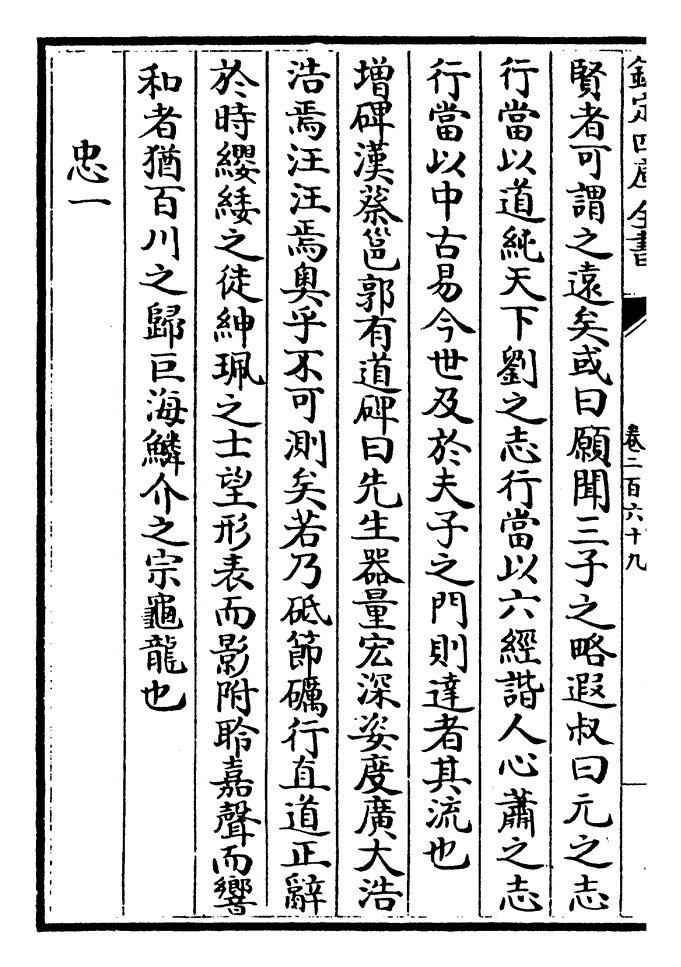 欽定四庫全書
卷二百六十九
賢者可謂之遠矣或曰願聞三子之略遐叔曰元之志
行當以道純天下劉之志行當以六經諧人心蕭之志
行當以中古易今世及於夫子之門則達者其流也
增碑漢蔡邕郭有道碑曰先生器量宏深姿度廣大浩
浩焉汪汪焉奧乎不可測矣若乃砥節礪行直道正辭
於時纓緌之徒紳珮之士望形表而影附聆嘉聲而響
和者猶百川之歸巨海鱗介之宗龜龍也
忠一